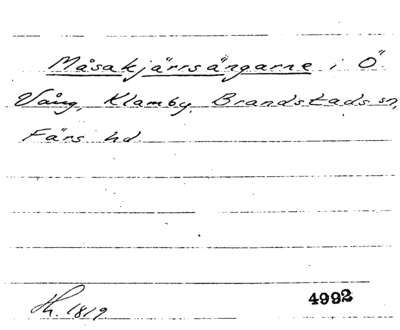 Måsakjärrsängarne i Ö.
Vång, Klamby, Brandstads sn,
Färs hd.
Hh. 1819
4992